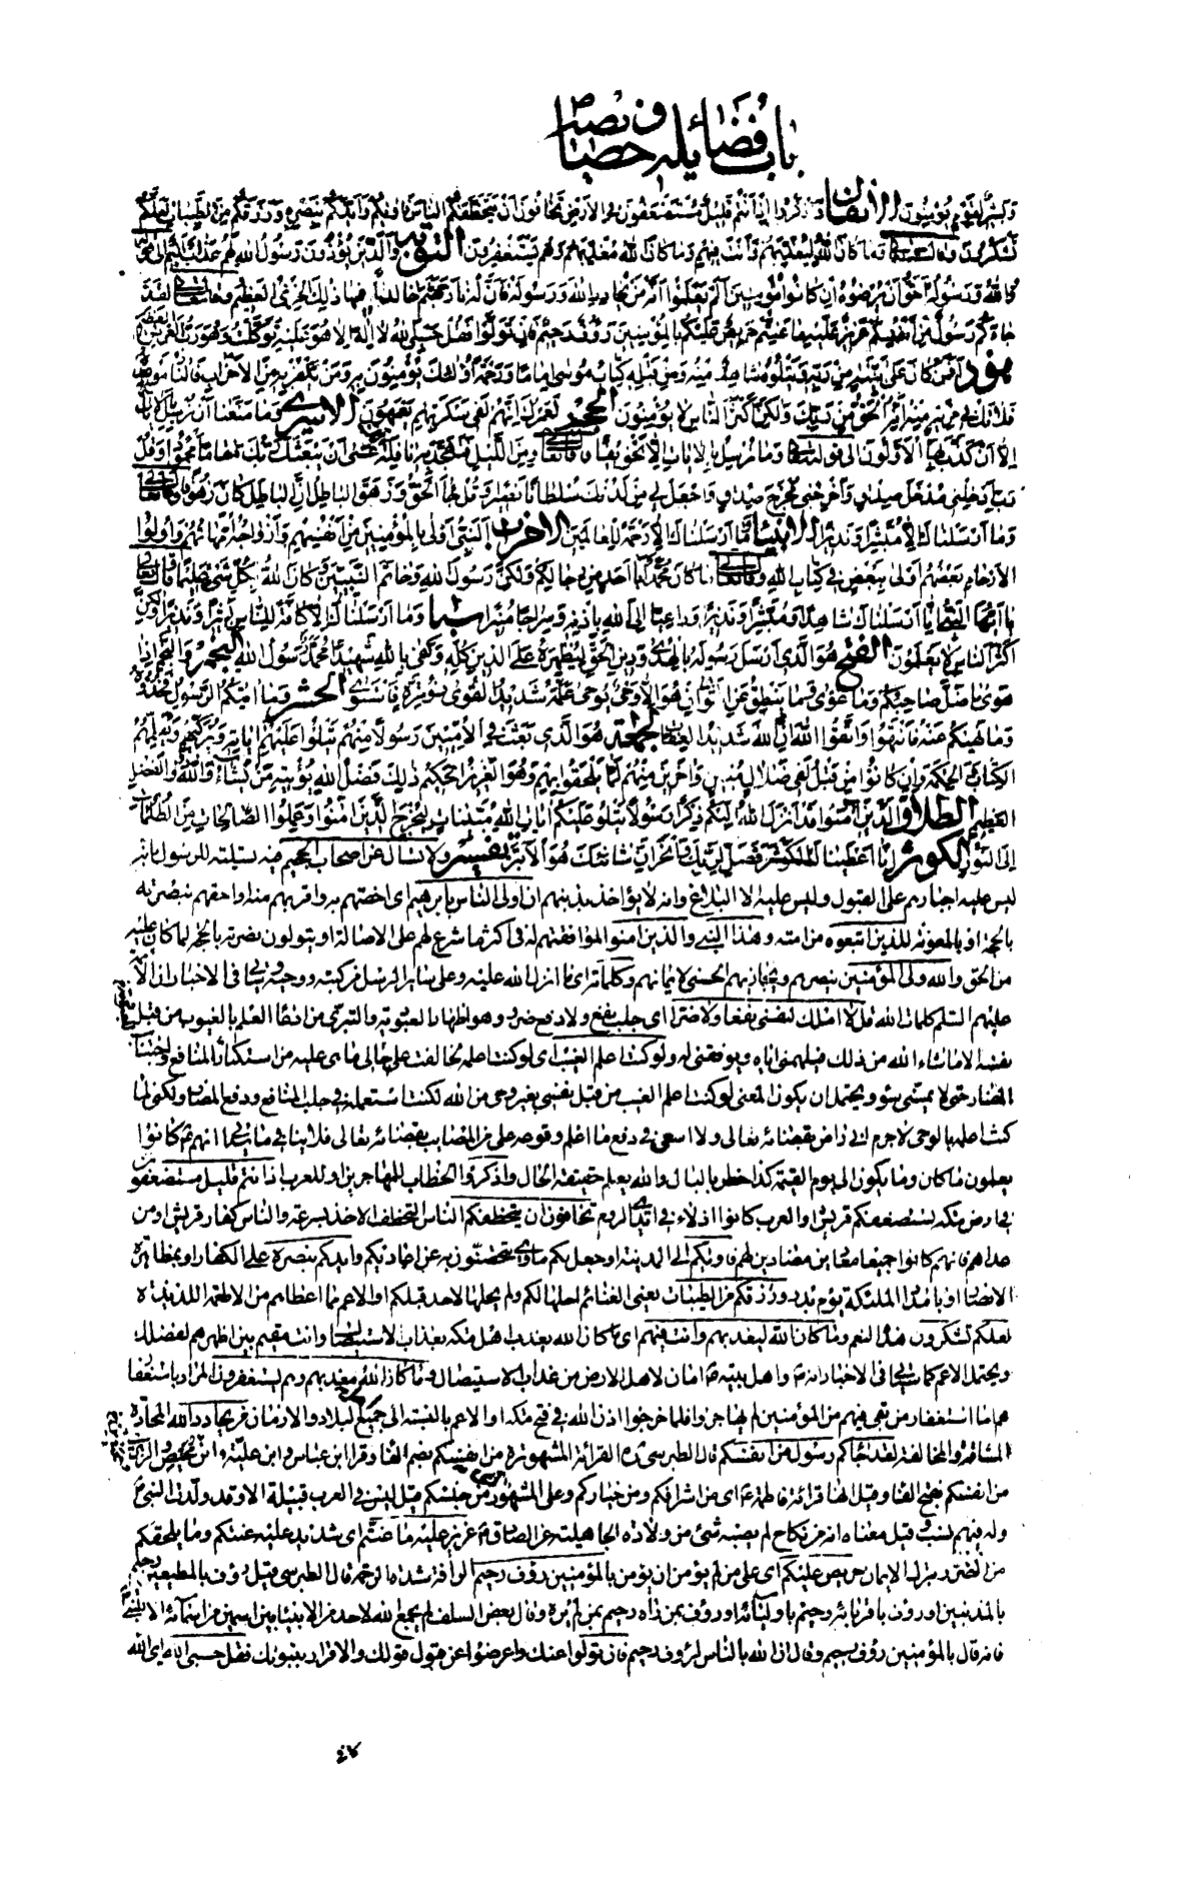 باب فضائله وخصائصه
وبشير لقوم يؤمنون الأنفال واذكروا إذ أنتم قليل مستضعفون في الأرض تخافون أن يتخطفكم الناس فآواكم وأيدكم بنصره ورزقكم من الطيبات لعلكم
تشكرون وقال تعالى وما كان الله ليعذبهم وأنت فيهم وما كان الله معذبهم وهم يستغفرون التوبة والذين يؤذون رسول الله لهم عذاب أليم إلى قوله
والله ورسوله أحق أن يرضوه إن كانوا مؤمنين ألم يعلموا أنه من يحادد الله ورسوله فأن له نار جهنم خالدا فيها ذلك الخزي العظيم وقال تعالى لقد
جاءكم رسول من أنفسكم عزيز عليه ما عنتم حريص عليكم بالمؤمنين رؤف رحيم فإن تولوا فقل حسبي الله لا إله إلا هو عليه توكلت وهو رب العرش العظيم
هود أفمن كان على بينة من ربه ويتلوه شاهد منه ومن قبله كتاب موسى إماما ورحمة أولئك يؤمنون به ومن يكفر به من الأحزاب فالنار موعده
فلا تك في مرية منه إنه الحق من ربك ولكن أكثر الناس لا يؤمنون الحجر لعمرك إنهم لفي سكرتهم يعمهون الاسرى وما منعنا أن نرسل بالآيات
إلا أن كذب بها الأولون إلى قوله تعالى وما نرسل بالآيات إلا تخويفا وقال تعالى ومن الليل فتهجد به نافلة لك عسى أن يبعثك ربك مقاما محمودا وقل
رب أدخلني مدخل صدق وأخرجني مخرج صدق واجعل لي من لدنك سلطانا نصيرا وقل جاء الحق وزهق الباطل إن الباطل كان زهوقا وقال تعالى
وما أرسلناك إلا مبشرا ونذيرا الأنبياء وما أرسلناك إلا رحمة للعالمين الأحزاب النبي أولى بالمؤمنين من أنفسهم وأزواجه أمهاتهم وأولوا
الأرحام بعضهم أولى ببعض في كتاب الله وقال تعالى ما كان محمد أبا أحد من رجالكم ولكن رسول الله وخاتم النبيين وكان الله بكل شيء عليما وقال تعالى
يا أيها النبي إنا أرسلناك شاهدا ومبشرا ونذيرا وداعيا إلى الله بإذنه وسراجا منيرا سبأ وما أرسلناك إلا كافة للناس بشيرا ونذيرا ولكن
أكثر الناس لا يعلمون الفتح هو الذي أرسل رسوله بالهدى ودين الحق ليظهره على الدين كله وكفى بالله شهيدا محمد رسول الله النجم والنجم إذا
هوى ما ضل صاحبكم وما غوى وما ينطق عن الهوى إن هو إلا وحي يوحى علمه شديد القوى ذو مرة فاستوى الحشر وما آتيكم الرسول فخذوه
وما نهيكم عنه فانتهوا واتقوا الله إن الله شديد العقاب الجمعة هو الذي بعث في الأميين رسولا منهم يتلوا عليهم آياته ويزكيهم ويعلمهم
الكتاب والحكمة وإن كانوا من قبل لفي ضلال مبين وآخرين منهم لما يلحقوا بهم وهو العزيز الحكيم ذلك فضل الله يؤتيه من يشاء والله ذو الفضل
العظيم الطلاق الذين آمنوا قد أنزل الله إليكم ذكرا رسولا يتلو عليكم آيات الله مبينات ليخرج الذين آمنوا وعملوا الصالحات من الظلمات
إلى النور الكوثر إنا أعطيناك الكوثر فصل لربك وانحر إن شانئك هو الأبتر تفسير ولا تسأل عن أصحاب الجحيم فيه تسلية للرسول بأنه
ليس عليه إجبارهم على القبول وليس عليه إلا البلاغ وانه لا يؤاخذ بذنبهم إن أولى الناس بإبرهيم اى اخصهم به وأقربهم منه أو احقهم بنصرته
بالحجة أو بالمعونة للذين اتبعوه من امته وهذا النبي والذين آمنوا لموافقتهم له في اكثر ما شرع لهم على الأصالة أو يتولون نصرته بالحجة لما كان عليه
من الحق والله ولي المؤمنين ينصرهم ويجازيهم الحسنى لإيمانهم وكلماته اى ما انزل الله عليه وعلى سائر الرسل من كتبه ووحيه وفي الأخبار ان الأئمة
عليهم السلم كلمات الله قل لا أملك لنفسي نفعا ولا ضرا اى جلب نفع ولا دفع ضر وهو اظهار للعبودية والتبري من ادعاء العلم بالغيوب من قبل
نفسه إلا ما شاء الله من ذلك فيلهمني اياه ويوفقني له ولو كنت أعلم الغيب اى لو كنت اعلمه لخالفت حالي ما هي عليه من استكثار المنافع واجتناب
المضار حتى لا يمسني سوء ويحتمل ان يكون المعنى لو كنت اعلم الغيب من قبل نفسي بغير وحي من الله لكنت استعمله في جلب المنافع ودفع المضار ولكني لما
كنت اعلمه بالوحي لا جرم اني راض بقضائه تعالى ولا اسعى في دفع ما اعلم وقوعه علي من المصائب بقضائه تعالى فلا ينافي ما سيأتي انهم كانوا
يعلمون ما كان وما يكون إلى يوم القيمة كذا خطر بالبال والله يعلم حقيقة الحال واذكروا الخطاب للمهاجرين أو للعرب إذ أنتم قليل مستضعفون
في ارض مكة يستضعفكم قريش أو العرب كانوا اذلاء في ايدي الروم تخافون أن يتخطفكم الناس التخطف الاخذ بسرعة والناس كفار قريش او من
عداهم فانهم كانوا جميعا معادين مضادين لهم فآويكم إلى المدينة أو جعل لكم مأوى تتحصنون به عن اعاديكم وأيدكم بنصره على الكفار أو بمظاهرة
الانصار أو بامداد الملئكة يوم بدر ورزقكم من الطيبات يعني الغنائم احلها لكم ولم يحلها لاحد قبلكم أو الاعم مما اعطاهم من الاطعمة اللذيذة
لعلكم تشكرون هذا النعم وما كان الله ليعذبهم وأنت فيهم اى ما كان الله يعذب اهل مكة بعذاب الاستيصال وانت مقيم بين اظهرهم لفضلك
ويحتمل الاعم كما سيأتي في الاخبار انه واهل بيته امان لاهل الارض من عذاب الاستيصال وما كان الله معذبهم وهم يستغفرون المراد باستغفا
رهم اما استغفار من بقي فيهم من المؤمنين لم يهاجروا فلما خرجوا اذن الله في فتح مكة أو الاعم بالنسبة إلى جميع البلاد والازمان من يحادد الله المحادة
المشاقة والمخالفة لقد جاءكم رسول من أنفسكم قال الطبرسي ره القرائة المشهورة من أنفسكم بضم الفاء وقرأ ابن عباس وابن علية وابن محيص والزهري
من انفسكم بفتح الفاء وقيل انها قرائة فاطمة ع اى من اشرافكم ومن خياركم وعلى المشهور من جنسكم قيل ليس في العرب قبيلة الا وقد ولدت النبي ص
وله فيهم نسب وقيل معناه انه من نكاح لم يصبه شيء من ولادة الجاهلية عن الصادق ع عزيز عليه ما عنتم اى شديد عليه عنتكم وما يلحقكم
من الضرر بترك الايمان حريص عليكم اى على من لم يؤمن ان يؤمن بالمؤمنين رؤف رحيم الرأفة شدة الرحمة قال الطبرسي قيل رؤف بالمطيعين رحيم
بالمذنبين أو رؤف باقربائه رحيم باوليائه أو رؤف بمن رآه رحيم بمن لم يره وقال بعض السلف لم يجمع الله لاحد من الأنبياء بين اسمين من اسمائه الا للنبي ص
فانه قال بالمؤمنين رؤف رحيم وقال ان الله بالناس لرؤف رحيم فإن تولوا عنك واعرضوا عن قبول قولك والاقرار بنبوتك فقل حسبي الله اى الله